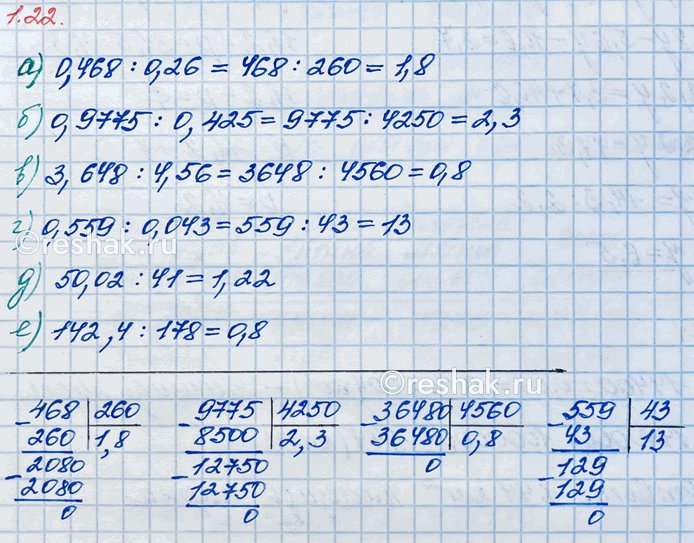 1.22.
а) 0,468 : 0,26 = 468 : 260 = 1,8
б) 0,9775 : 0,425 = 9775 : 4250 = 2,3
в) 3,648 : 4,56 = 3648 : 4560 = 0,8
г) 0,559 : 0,043 = 559 : 43 = 13
©reshak.ru
д) 50,02 : 41 = 1,22
е) 142,4 : 178 = 0,8
©reshak.ru
-468 | 260 -9775 | 4250 -36480 | 4560 -559 | 43
260 | 1,8 8500 | 2,3 36480 | 0,8 43 | 13
-2080 -12750 0 -129
2080 12750 129
0 0 0